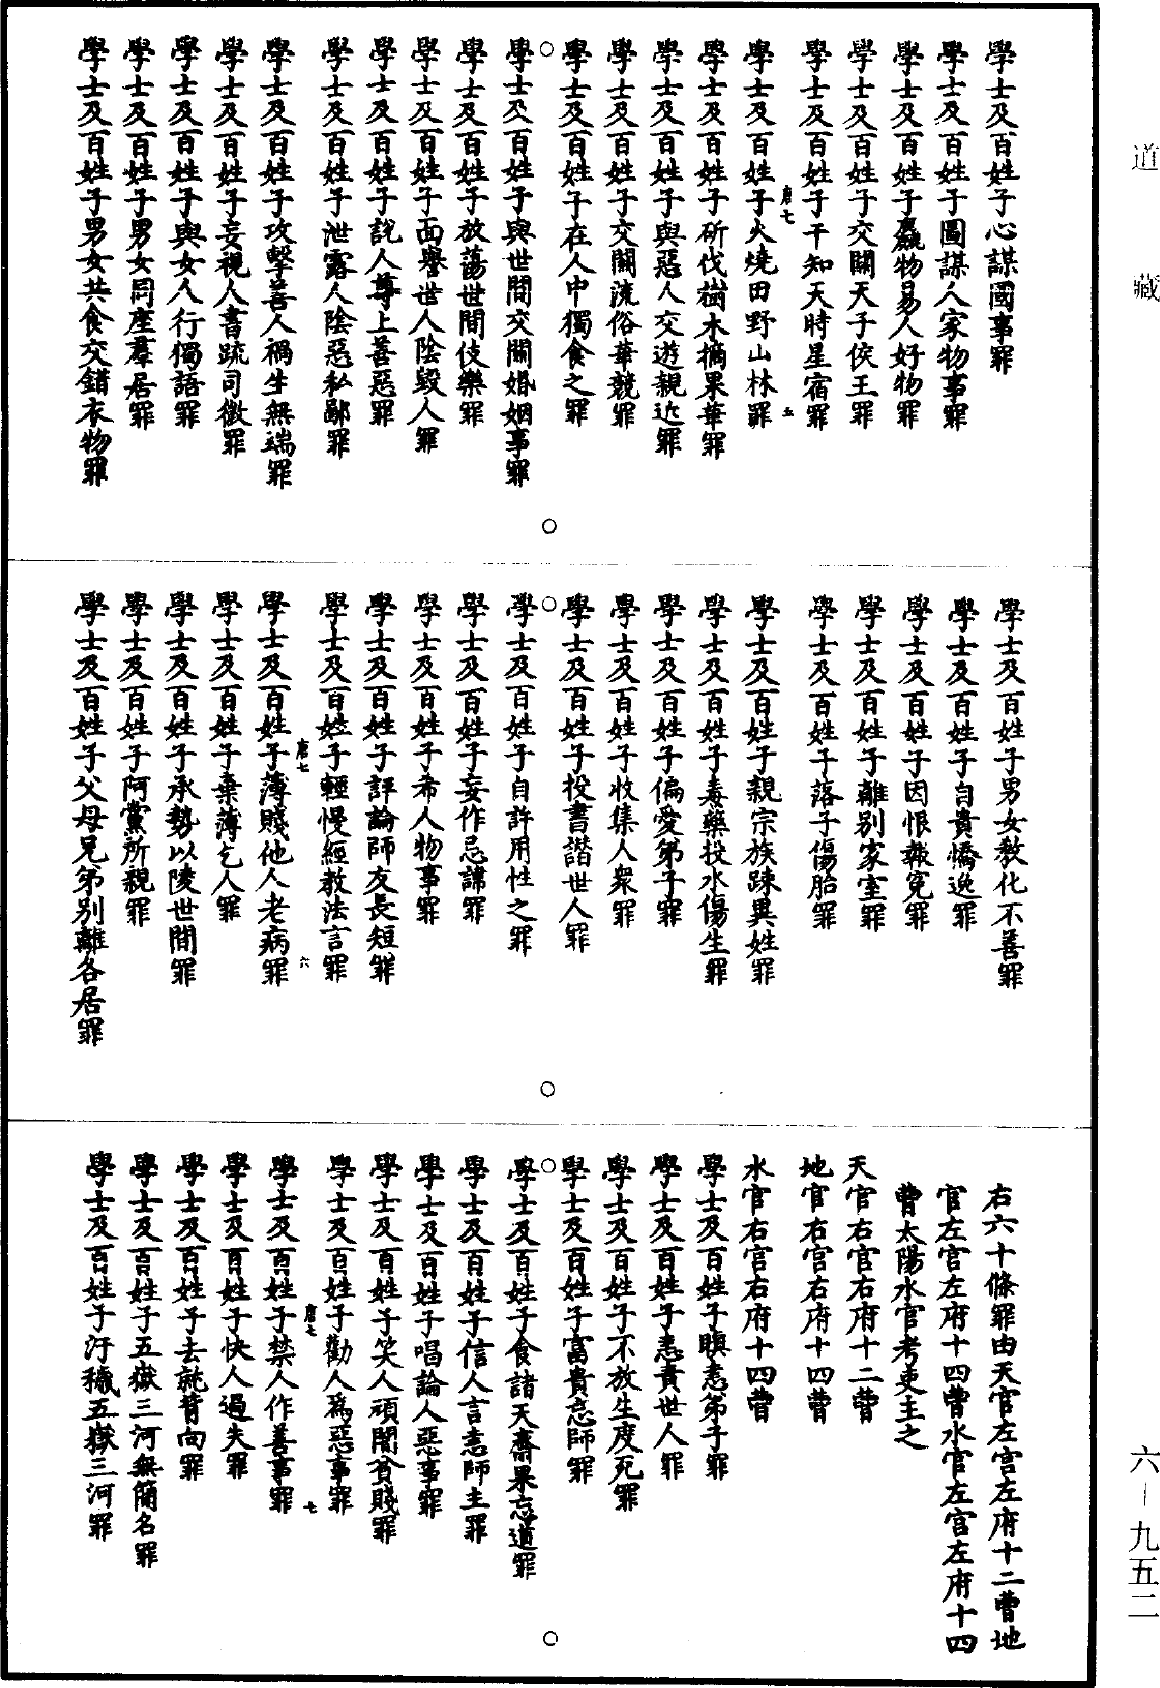 學士及百姓子心謀國事罪
學士及百姓子圖謀人家物事罪
學士及百姓子麤物易人好物罪
學士及百姓子交關天子侯王罪
學士及百姓子干知天時星宿罪
唐七 五
學士及百姓子火燒田野山林罪
學士及百姓子斫伐樹木摘果華罪
學士及百姓子與惡人交遊親近罪
學士及百姓子交關流俗華競罪
學士及百姓子在人中獨食之罪
學士及百姓子與世間交關婚姻事罪
學士及百姓子放蕩世間伎樂罪
學士及百姓子面譽世人陰毀人罪
學士及百姓子說人尊上善惡罪
學士及百姓子泄露人陰惡私鄙罪
學士及百姓子攻擊善人禍生無端罪
學士及百姓子妄視人書疏伺徼罪
學士及百姓子與女人行獨語罪
學士及百姓子男女同座羣居罪
學士及百姓子男女共食交錯衣物罪
學士及百姓子男女教化不善罪
學士及百姓子自貴憍逸罪
學士及百姓子因恨報冤罪
學士及百姓子離別家室罪
學士及百姓子落子傷胎罪
學士及百姓子親宗族踈異姓罪
學士及百姓子毒藥投水傷生罪
學士及百姓子偏愛弟子罪
學士及百姓子收集人衆罪
學士及百姓子投書譖世人罪
學士及百姓子自許用性之罪
學士及百姓子妄作忌諱罪
學士及百姓子希人物事罪
學士及百姓子評論師友長短罪
學士及百姓子輕慢經教法言罪
唐七 六
學士及百姓子薄賤他人老病罪
學士及百姓子棄薄乞人罪
學士及百姓子承勢以陵世間罪
學士及百姓子阿黨所親罪
學士及百姓子父母兄弟別離各居罪
右六十條罪由天官左宮左府十二曹地
官左宮左府十四曹水官左宮左府十四
曹太陽水官考吏主之
天官右宮右府十二曹
地官右宮右府十四曹
水官右宮右府十四曹
學士及百姓子瞋恚弟子罪
學士及百姓子恚責世人罪
學士及百姓子不放生度死罪
學士及百姓子富貴忘師罪
學士及百姓子食諸天齋果忘道罪
學士及百姓子信人言恚師主罪
學士及百姓子唱論人惡事罪
學士及百姓子笑人頑闇貧賤罪
學士及百姓子勸人爲惡事罪
唐七 七
學士及百姓子禁人作善事罪
學士及百姓子快人過失罪
學士及百姓子去就背向罪
學士及百姓子五嶽三河無簡名罪
學士及百姓子汙穢五嶽三河罪
道藏
六－九五二